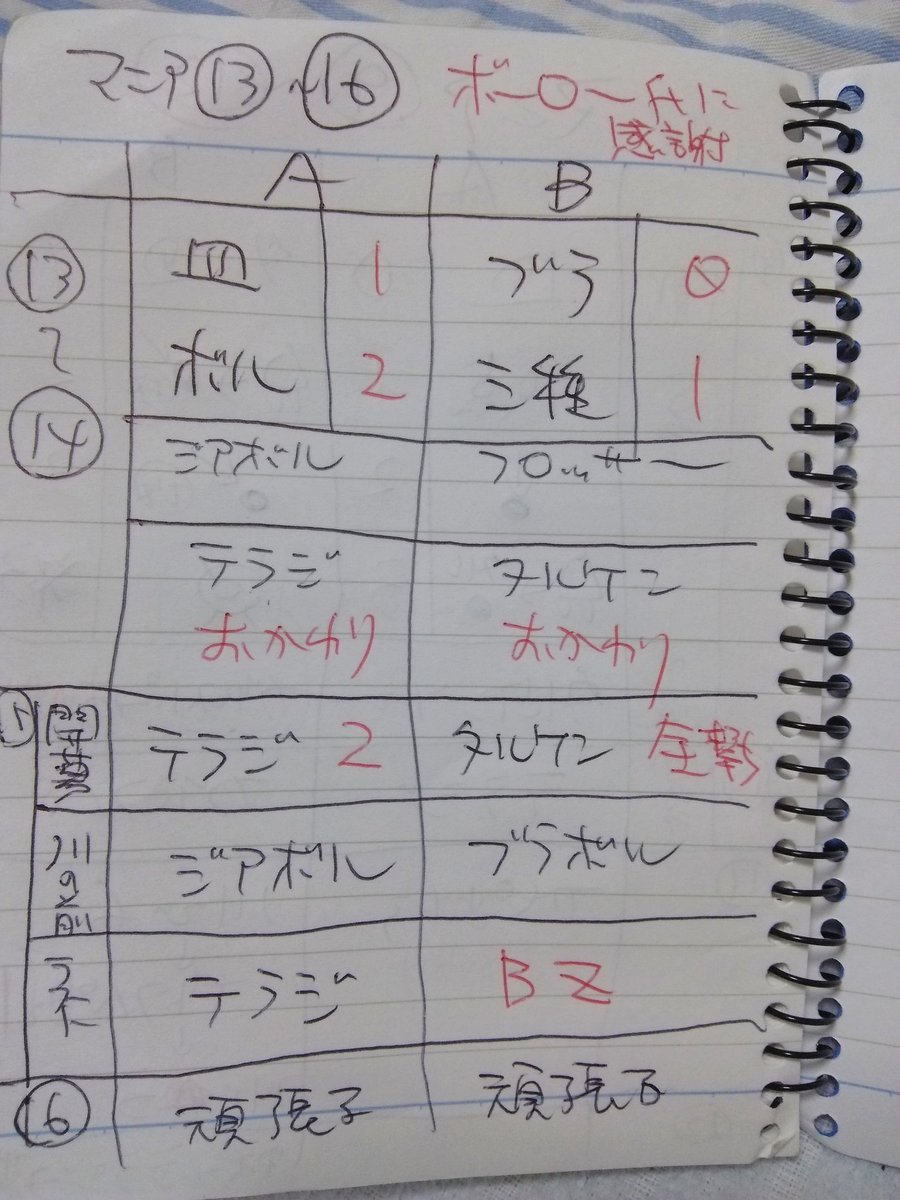 マニア⑬~⑯ ボーローftに
感謝
A B
⑬ 皿 1 ブラ 0
~ ボル 2 三種 1
⑭
ジアボル ブロッサー
テラジ ヌルゲン
おかわり おかわり
テラジ 2 ヌルゲン 全撃
川の前 ジアボル ブラボル
ラスト テラジ BZ
⑯ 頑張る 頑張る